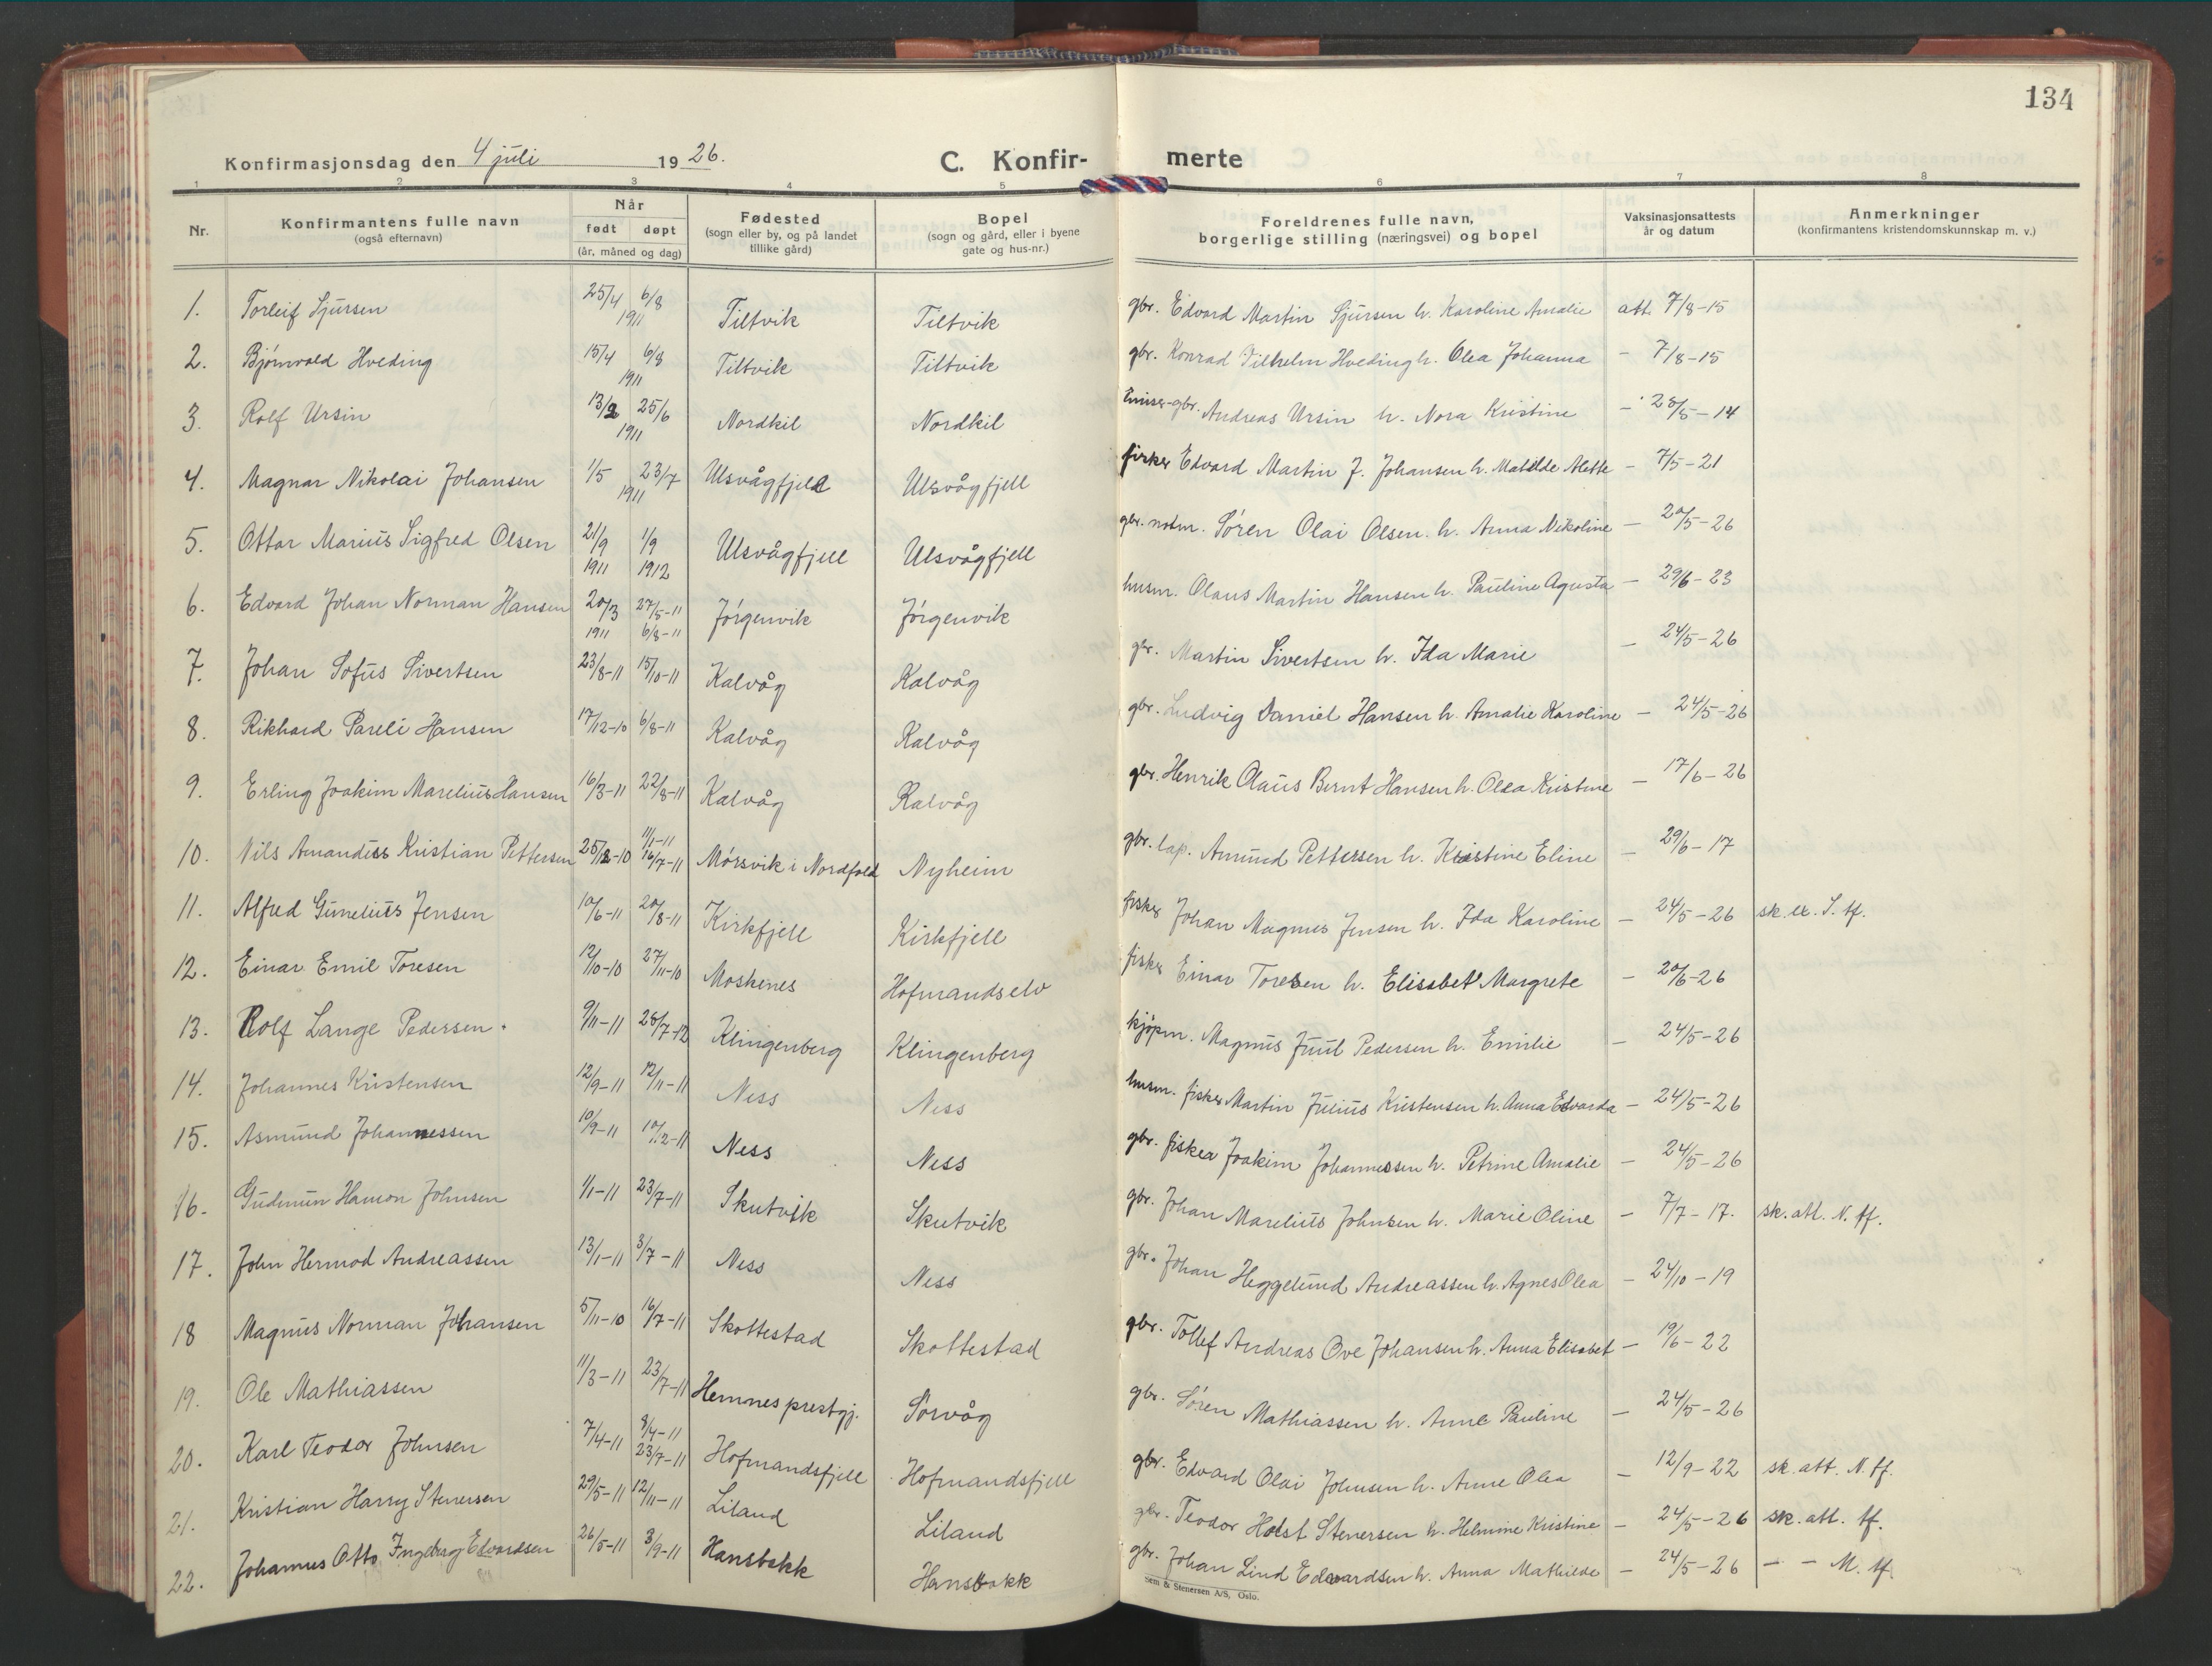 134
Konfirmasjonsdag den 4 juli 1926. C. Konfir- merte
1 2 3 4 5 6 7 8
Nr. Konfirmantens fulle navn (også efternavn) Når født døpt (år, måned og dag) Fødested (sogn eller by, og på landet tillike gård) Bopel (sogn og gård, eller i byene gate og hus-nr.) Foreldrenes fulle navn, borgerlige stilling (næringsvei) og bopel Vaksinasjonsattests år og datum Anmerkninger (konfirmantens kristendomskunnskap m. v.)
1. Torleif Sjursen 25/4 6/8 1911 Tiltvik Tiltvik gbr. Edvard Martin Sjursen h. Karoline Amalie att. 7/8-15
2. Bjørnvald Hveding 15/4 6/8 1911 Tiltvik Tiltvik gbr. Konrad Vilhelm Hveding h. Olea Johanna - 7/8-15
3. Rolf Ursin 13/2 25/6 1911 Nordkil Nordkil gbr. Andreas Ursin h. Nora Kristine - 28/5-14
4. Magnar Nikolai Johansen 1/5 23/7 1911 Ulsvågfjell Ulsvågfjell fisker Edvard Martin J. Johansen h. Matilde Alette - 7/5-21
5. Ottar Marius Sigfred Olsen 21/9 1911 1/9 1912 Ulsvågfjell Ulsvågfjell gbr. notm. Søren Olai Olsen h. Anna Nikoline - 20/5-26
6. Edvard Johan Norman Hansen 20/3 1911 27/5-11 6/8-11 Jørgenvik Jørgenvik husm. Olaus Martin Hansen h. Pauline Agusta - 29/6-23
7. Johan Sofus Sivertsen 23/8-11 15/10-11 Kalvåg Kalvåg gbr. Martin Sivertsen h. Ida Marie - 24/5-26
8. Rikhard Pareli Hansen 17/12-10 6/8-11 Kalvåg Kalvåg gbr. Ludvig Daniel Hansen h. Amalie Karoline - 24/5-26
9. Erling Joakim Marelius Hansen 16/3-11 22/8-11 Kalvåg Kalvåg gbr. Henrik Olaus Bernt Hansen h. Olea Kristine - 17/6-26
10. Nils Amandus Kristian Pettersen 25/12-10 1/1-11 16/7-11 Mørsvik i Nordfold Nyheim gbr. lap. Amund Pettersen h. Kristine Eline - 29/6-17
11. Alfred Gunelius Jensen 10/6-11 20/8-11 Kirkfjell Kirkfjell fisker Johan Magnus Jensen h. Ida Karoline - 24/5-26 sk. tf.
12. Einar Emil Toresen 12/10-10 27/11-10 Moskenes Hofmandselv fisker Einar Toresen h. Elisabet Margrete - 20/6-26
13. Rolf Lange Pedersen. 9/11-11 28/7-12 Klingenberg Klingenberg kjøpm. Magnus Juul Pedersen h. Emilie - 24/5-26
14. Johannes Kristensen 12/9-11 12/11-11 Ness Ness husm. fisker Martin Julius Kristensen h. Anna Edvarda - 24/5-26
15. Asmund Johannessen 10/9-11 10/12-11 Ness Ness gbr. fisker Joakim Johannessen h. Petrine Amalie - 24/5-26
16. Gudmun Hamon Johnsen 1/1-11 23/7-11 Skutvik Skutvik gbr. Johan Marelius Johnsen h. Marie Oline - 7/7-17. sk. att. N. tf.
17. John Hermod Andreassen 13/1-11 3/7-11 Ness Ness gbr. Johan Heggelund Andreassen h. Agnes Olea - 24/10-19
18 Magnus Norman Johansen 5/11-10 16/7-11 Skottestad Skottestad gbr. Tollef Andreas Ove Johansen h. Anna Elisabet - 19/6-22
19. Ole Mathiassen 11/3-11 23/7-11 Hemnes prestgj. Sørvåg gbr. Søren Mathiassen h. Anne Pauline - 24/5-26
20. Karl Teodor Johnsen 7/4-11 8/4-11 23/7-11 Hofmandsfjell Hofmandsfjell gbr. Edvard Olai Johnsen h. Anne Olea - 12/9-22 sk. att. N. tf.
21. Kristian Harry Stenersen 29/5-11 12/11-11 Liland Liland gbr. Teodor Holst Stenersen h. Helmine Kristine - 24/5-26 sk. att. tf.
22. Johannes Otto Ingeberg Edvardsen 26/5-11 3/9-11 Hansbakk Hansbakk gbr. Johan Lind Edvardsen h. Anna Mathilde - 24/5-26 - - M. tf.
Sem & Stenersen A/S, Oslo.